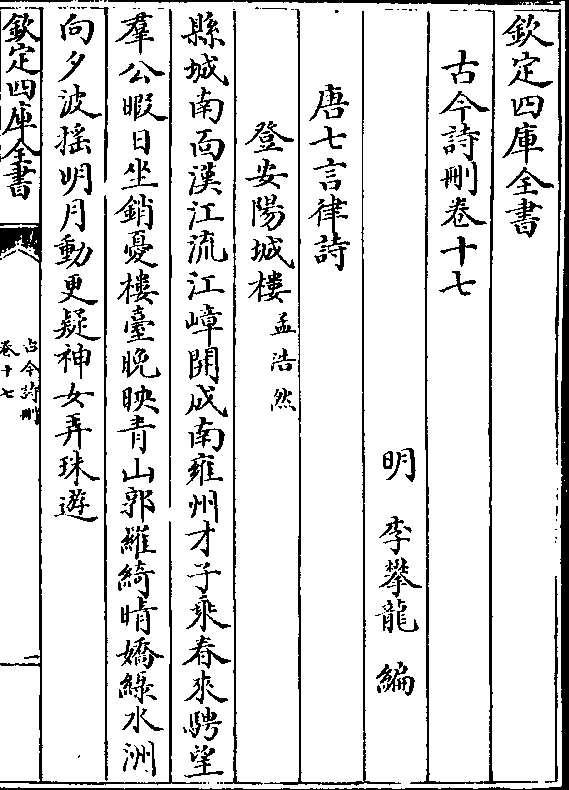 欽定四庫全書
古今詩刪卷十七
明 李攀龍 編
唐七言律詩
登安陽城樓 孟浩然
縣城南面漢江流江嶂開成南雍州才子乘春來騁望
羣公暇日坐銷憂樓臺晚映青山郭羅綺晴嬌綠水洲
向夕波搖明月動更疑神女弄珠遊
欽定四庫全書
古今詩刪
卷十七
一